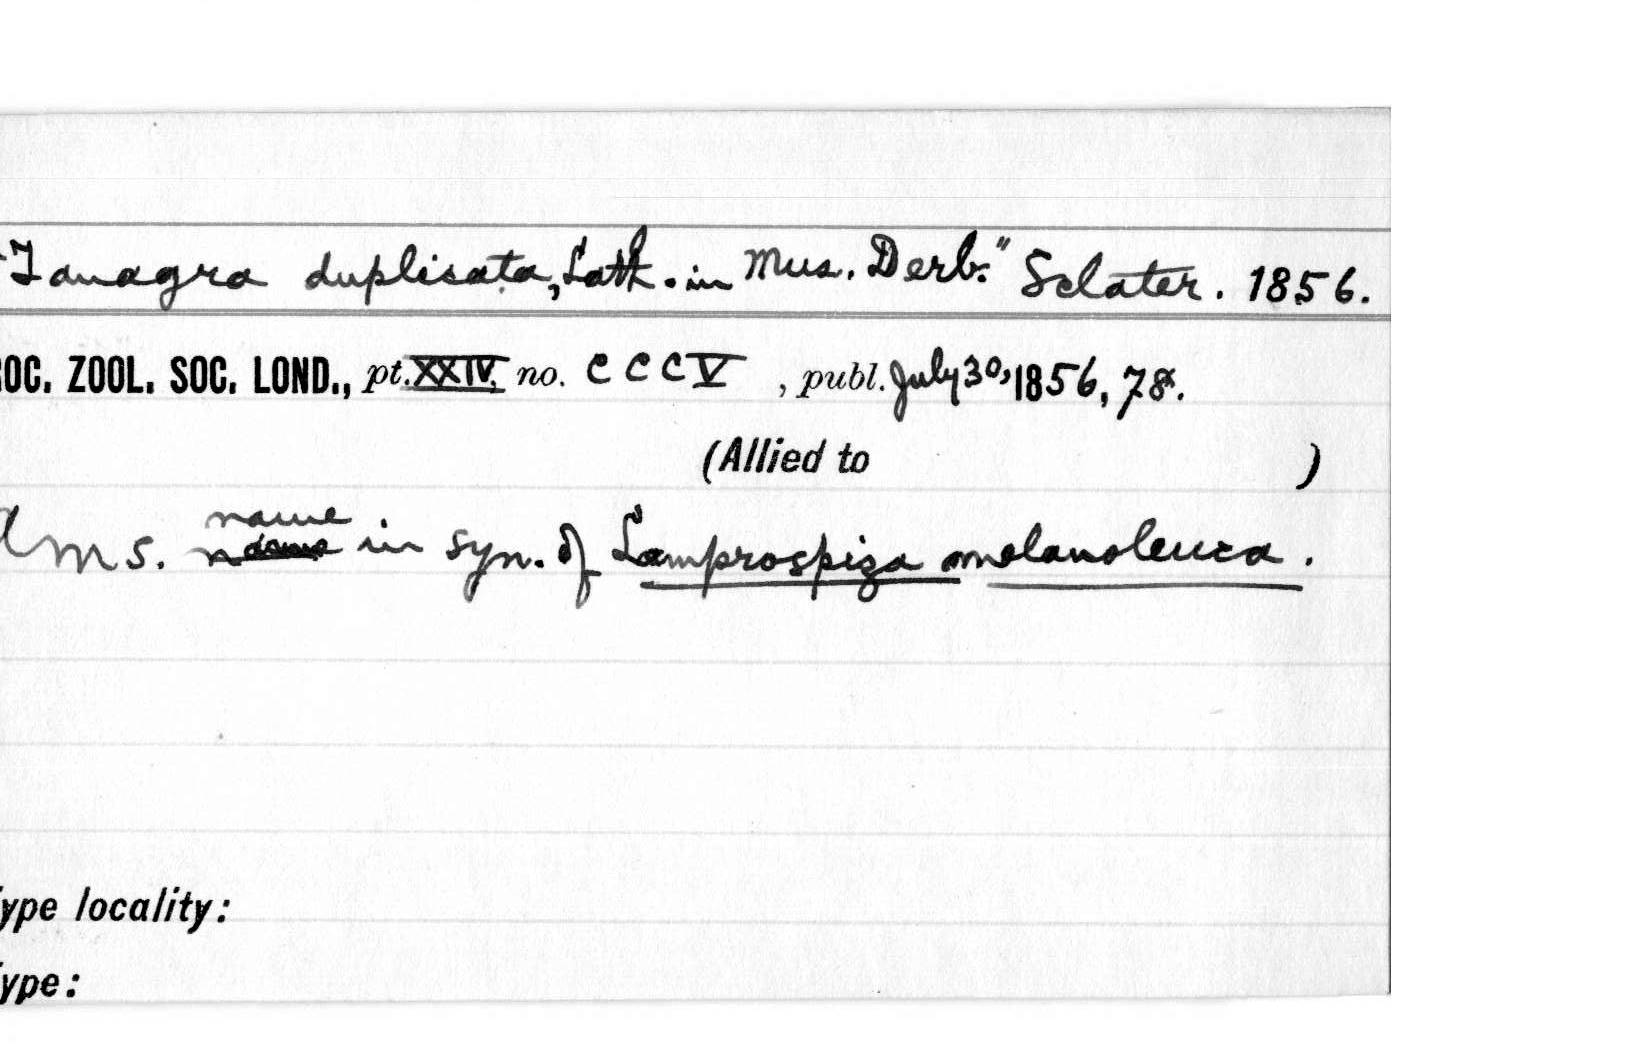 "Tanagra duplisata, Lath. in Mus. Derb." Sclater. 1856.
ROC. ZOOL. SOC. LOND., pt. XXIV, no. CCCV , publ. July 30, 1856, 78.
(Allied to )
name
MS. in syn. of Lamprospiza melanoleuca.
ype locality:
ype: